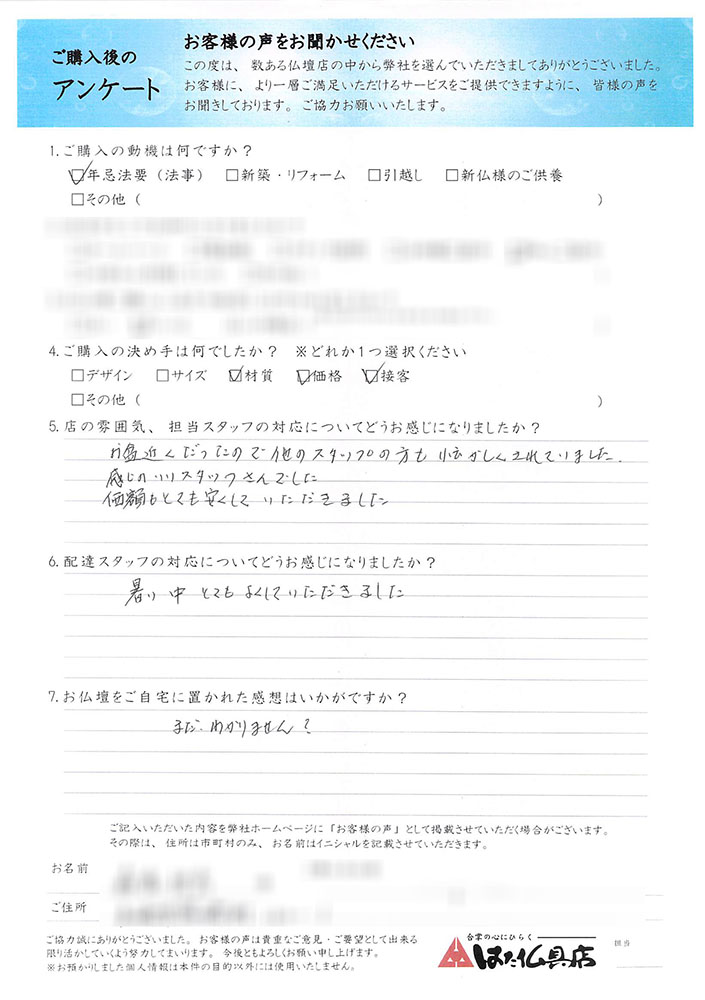 ご購入後の
アンケート
お客様の声をお聞かせください
この度は、数ある仏壇店の中から弊社を選んでいただきましてありがとうございました。
お客様に、より一層ご満足いただけるサービスをご提供できますように、皆様の声を
お聞きしております。ご協力お願いいたします。
1.ご購入の動機は何ですか？
☑年忌法要（法事） □新築・リフォーム □引越し □新仏様のご供養
□その他（ ）
4.ご購入の決め手は何でしたか？ ※どれか1つ選択ください
□デザイン □サイズ ☑材質 ☑価格 ☑接客
□その他（ ）
5.店の雰囲気、担当スタッフの対応についてどうお感じになりましたか？
お盆近くだったので他のスタッフの方も忙がしくされていました.
感じのいいスタッフさんでした
価額もとても安くしていただきました
6.配達スタッフの対応についてどうお感じになりましたか？
暑い中とてもよくしていただきました
7.お仏壇をご自宅に置かれた感想はいかがですか？
まだ、わかりません？
ご記入いただいた内容を弊社ホームページに「お客様の声」として掲載させていただく場合がございます。
その際は、住所は市町村のみ、お名前はイニシャルを記載させていただきます。
お名前
ご住所
ご協力誠にありがとうございました。お客様の声は貴重なご意見・ご要望として出来る
限り活かしていくよう努力してまいります。今後ともよろしくお願い申し上げます。
※お預かりしました個人情報は本件の目的以外には使用いたしません。
合掌の心にひらく
はた仏具店
担当